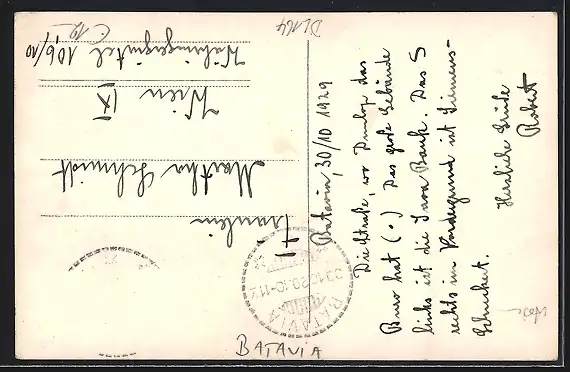 DL164
C 12.-
Batavia, 30/10 1929
Die Straße, wo Dunlop das
Buro hat (•) Das große Gebäude
links ist die Java Bank. Das S
rechts im Vordergrund ist Siemens-
Schuckert.
Herzliche Grüße
Robert
Fräulein
Martha Schmidt
Wien IX
Währingergürtel 106/10
BATAVIA
BATAVIA